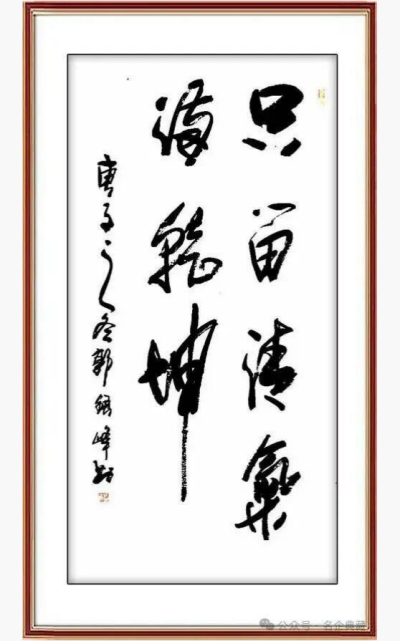 只留清氣
滿乾坤
庚子之冬郭峰书
公众号 · 名企典藏